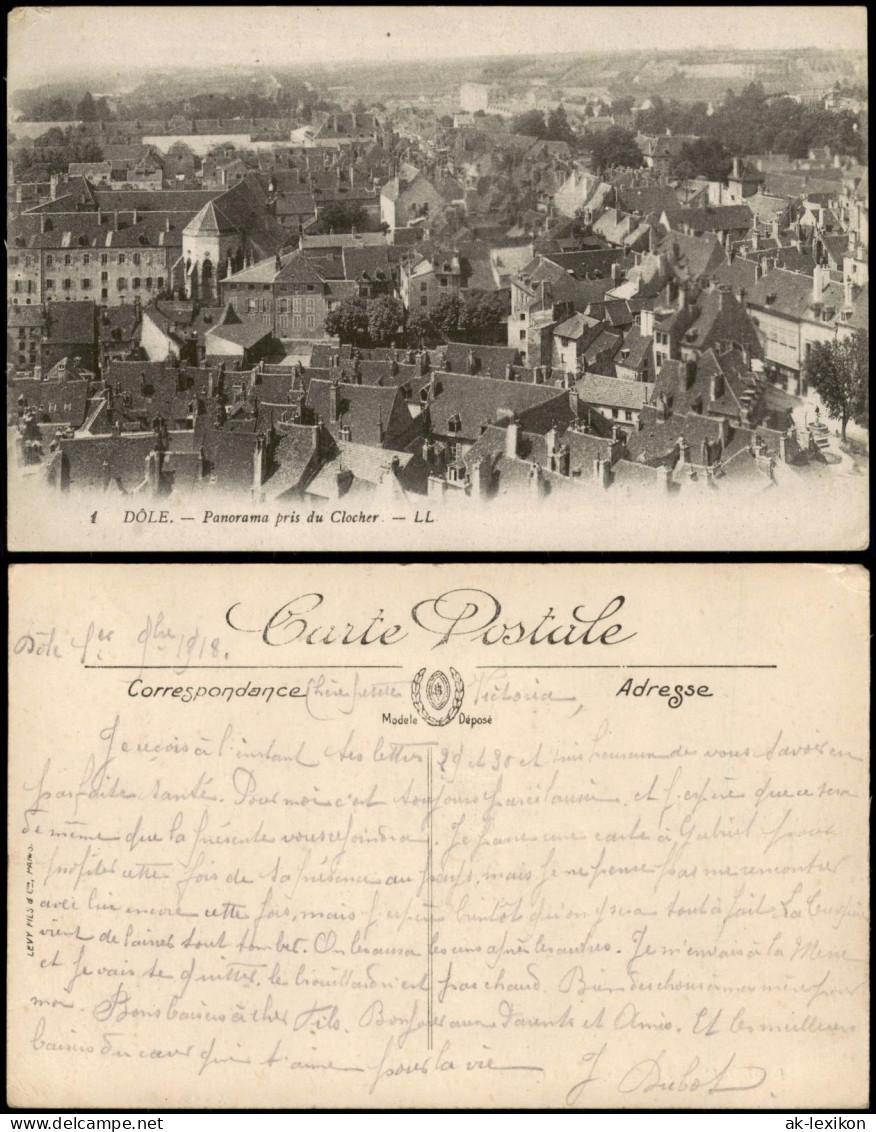 1 DÔLE. — Panorama pris du Clocher. — LL
Carte Postale
Dôle 1er 9bre 1918.
Correspondance
Adresse
Modèle Déposé
Chère petite Victoria,
Je reçois à l'instant tes lettres 29 et 30 et suis heureux de vous savoir en
parfaite santé. Pour moi c'est toujours pareil aussi, et j'espère que ce sera
de même que la présente vous rejoindra. Je passe une carte à Gabriel pour
profiter cette fois de sa présence au pays, mais je ne pense pas me rencontrer
avec lui encore cette fois, mais j'espère bientôt qu'on y sera tout à fait. La
vient de laisser tout tomber. On les aura les uns après les autres. Je m'en vais à la Messe
et je vais te quitter, le brouillard n'est pas chaud. Bien des choses à ma mère pour
moi. Bons baisers à cher Fils. Bonjour aux Parents et Amis. Et les meilleurs
baisers du cœur qui t'aime pour la vie
J Dubot
LEVY FILS & Cie, PARIS.
ak-lexikon